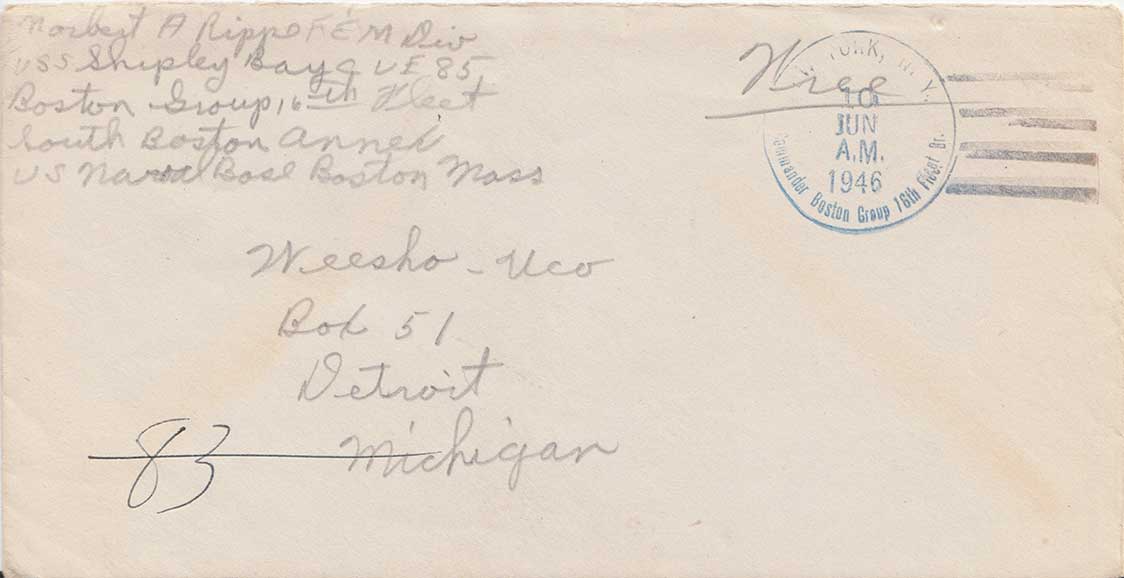 Norbert A Rippe F E M Div
USS Shipley Bay C V E 85
Boston Group 16th Fleet
South Boston Annex
US Naval Base Boston Mass
Free
YORK, N.Y.
10
JUN
A.M.
1946
Commander Boston Group 16th Fleet Br.
Weesho - Uco
Box 51
Detroit
Michigan
83